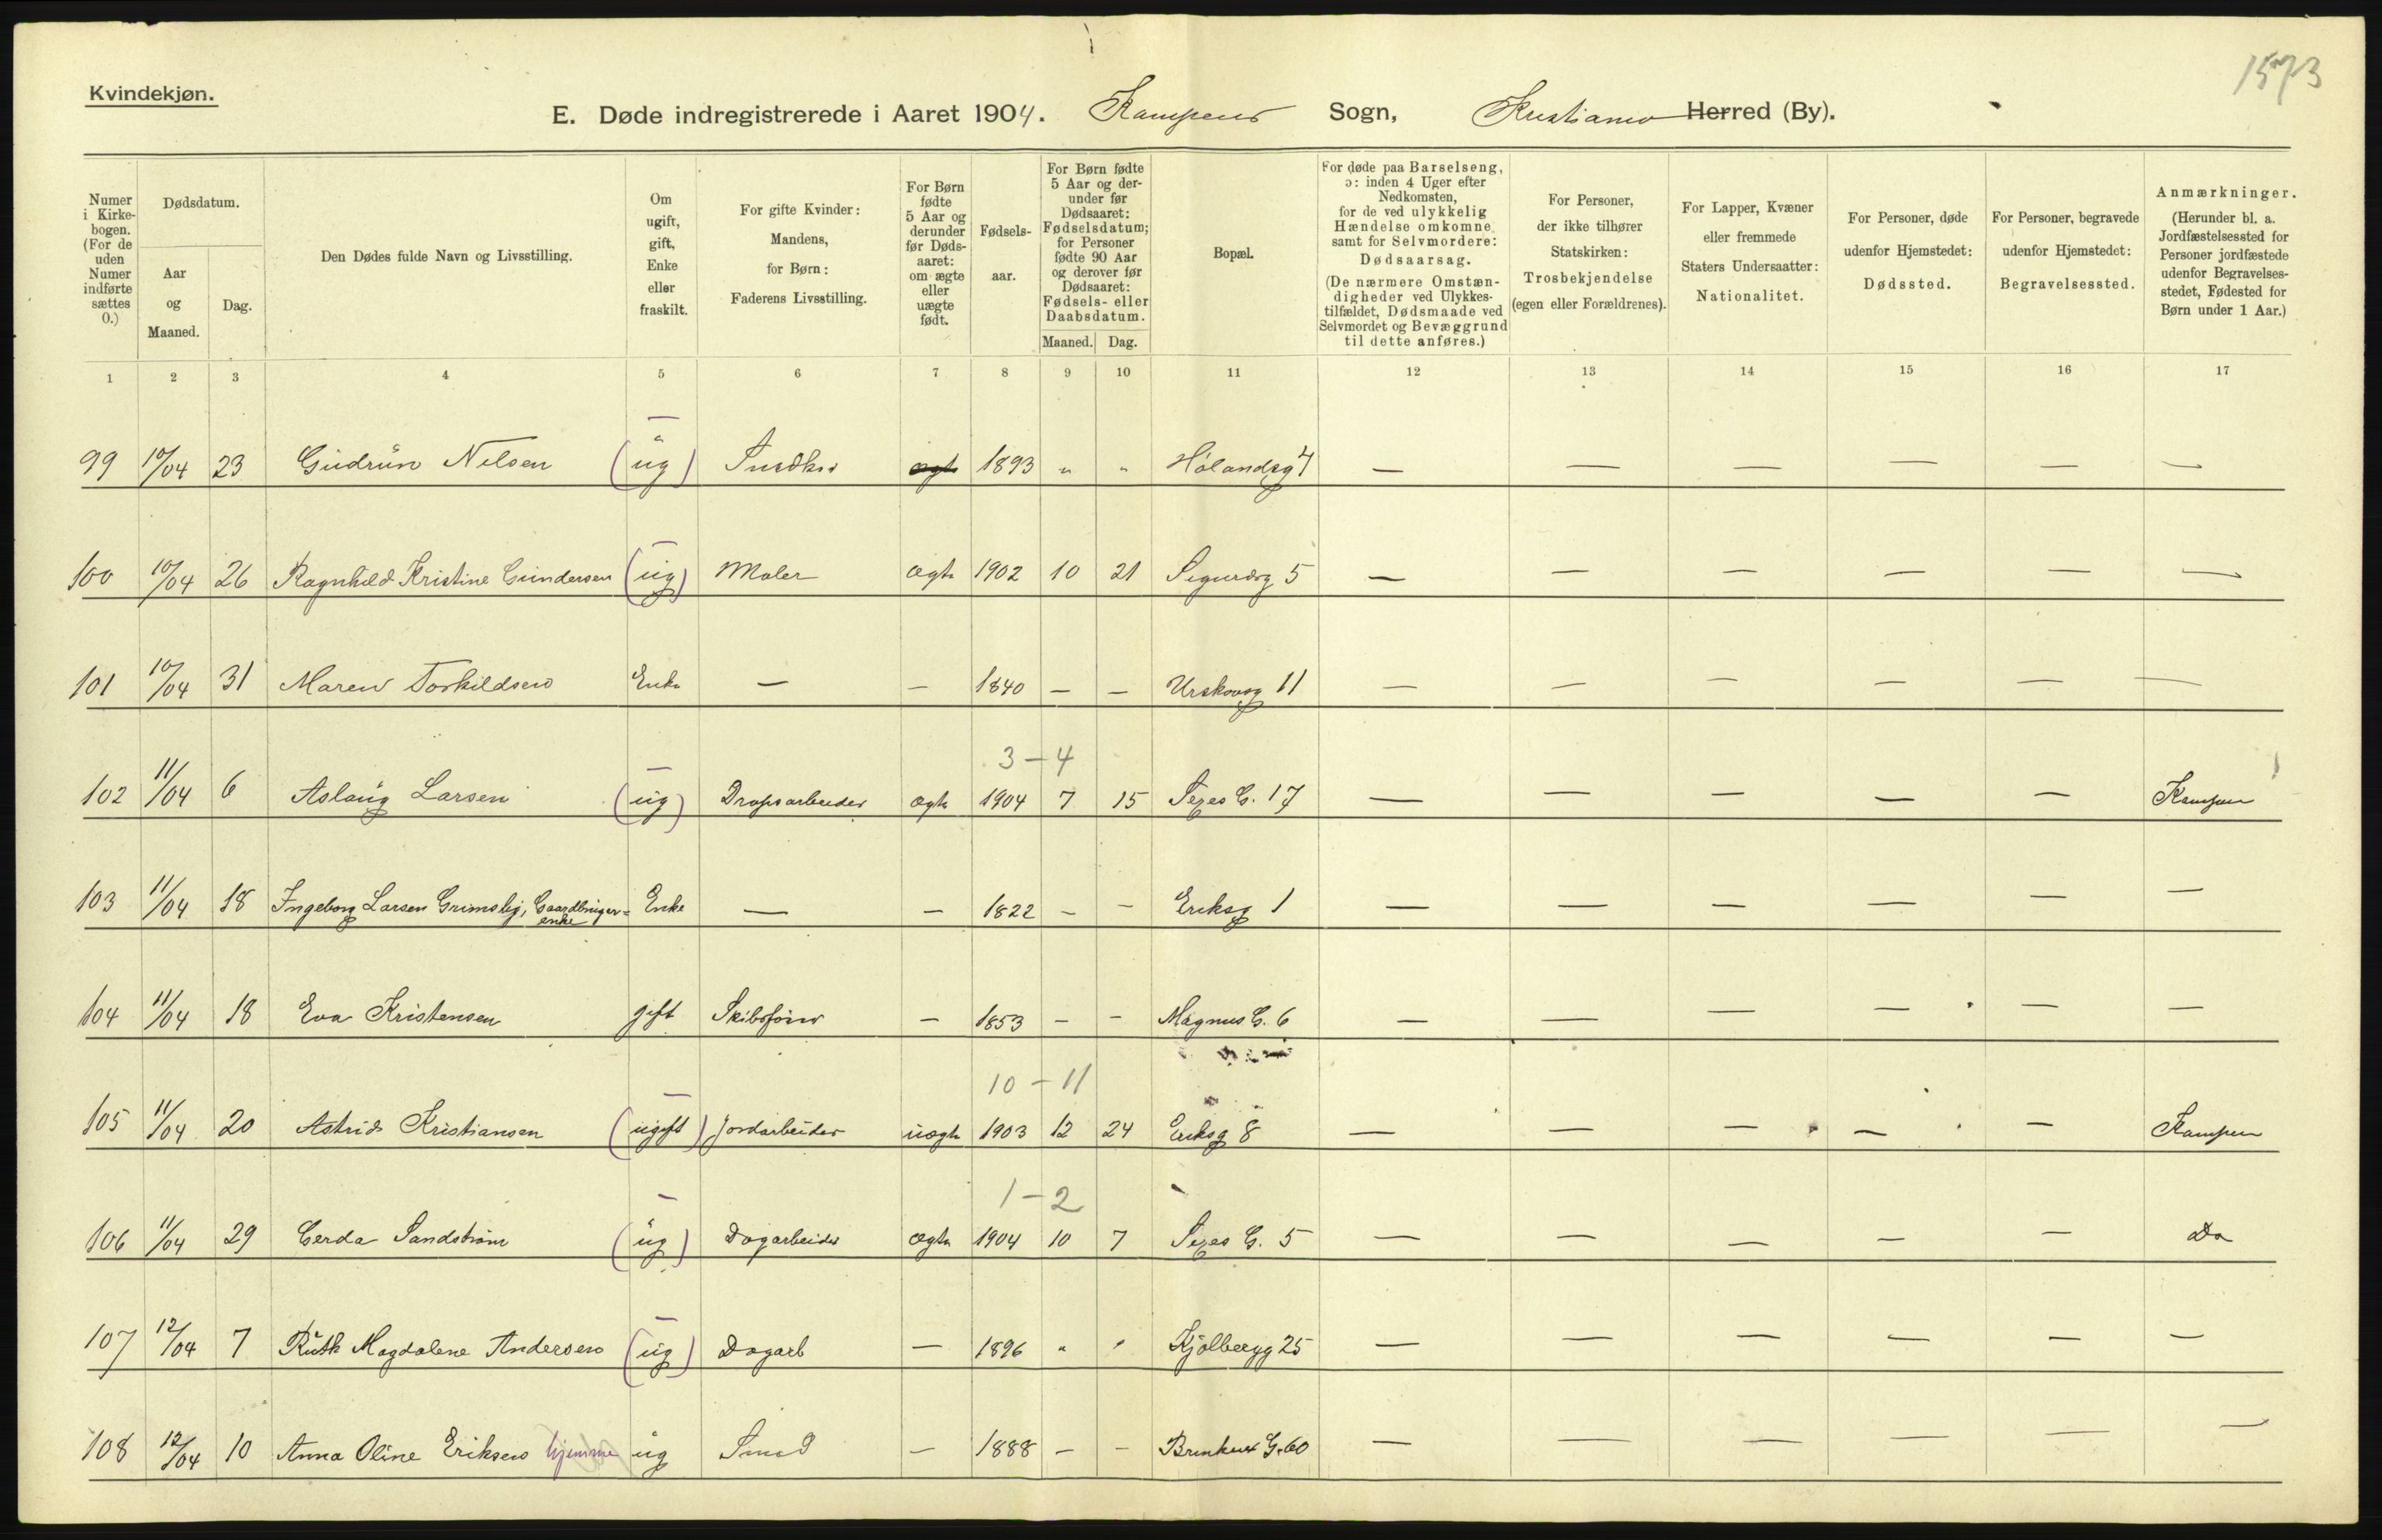 1573
Kvindekjøn.
E. Døde indregistrerede i Aaret 1904. Kampens Sogn, Kristiania Herred (By).
Numer i Kirkebogen. (For de uden Numer indførte sættes 0.)
Dødsdatum.
Aar og Maaned.
Dag.
Den Dødes fulde Navn og Livsstilling.
Om ugift, gift, Enke eller fraskilt.
For gifte Kvinder: Mandens, for Børn: Faderens Livsstilling.
For Børn fødte 5 Aar og derunder før Dødsaaret: om ægte eller uægte født.
Fødselsaar.
For Børn fødte 5 Aar og derunder før Dødsaaret: Fødselsdatum; for Personer fødte 90 Aar og derover før Dødsaaret: Fødsels- eller Daabsdatum.
Maaned. Dag.
Bopæl.
For døde paa Barselseng, ɔ: inden 4 Uger efter Nedkomsten, for de ved ulykkelig Hændelse omkomne samt for Selvmordere: Dødsaarsag. (De nærmere Omstændigheder ved Ulykkestilfældet, Dødsmaade ved Selvmordet og Bevæggrund til dette anføres.)
For Personer, der ikke tilhører Statskirken: Trosbekjendelse (egen eller Forældrenes).
For Lapper, Kvæner eller fremmede Staters Undersaatter: Nationalitet.
For Personer, døde udenfor Hjemstedet: Dødssted.
For Personer, begravede udenfor Hjemstedet: Begravelsessted.
Anmærkninger. (Herunder bl. a. Jordfæstelsessted for Personer jordfæstede udenfor Begravelsesstedet, Fødested for Børn under 1 Aar.)
1 2 3 4 5 6 7 8 9 10 11 12 13 14 15 16 17
99 10/04 23 Gudrun Nilsen (ug) Snedker ægte 1893 " " Hølandsg 4 — — — — — —
100 10/04 26 Ragnhild Kristine Gundersen (ug) Maler ægte 1902 10 21 Sigurdsg 5 — — — — — —
101 10/04 31 Maren Torkildsen Enke — — 1840 — — Urskovsg 11 — — — — — —
3 - 4
102 11/04 6 Aslaug Larsen (ug) Drapsarbeider ægte 1904 7 15 Sexes G. 17 — — — — — Kampen
103 11/04 18 Ingeborg Larsen Grimslej, Gaardbrugerenke Enke — — 1822 — — Eriksg 1 — — — — — —
104 11/04 18 Eva Kristensen gift Skibsfører — 1853 — — Magnus G. 6 — — — — — —
10 - 11
105 11/04 20 Astrid Kristiansen (ugift) Jordarbeider uægte 1903 12 24 Eriksg 8 — — — — — Kampen
1 - 2
106 11/04 29 Gerda Sandstrøm (ug) Dagarbeider ægte 1904 10 7 Sexes G. 5 — — — — — Do
107 12/04 7 Ruth Magdalene Andersen (ug) Dagarb — 1896 " " Kjølbergg 25 — — — — — —
108 12/04 10 Anna Oline Eriksen hjemme ug Smed — 1888 — — Brinken G. 60 — — — — — —